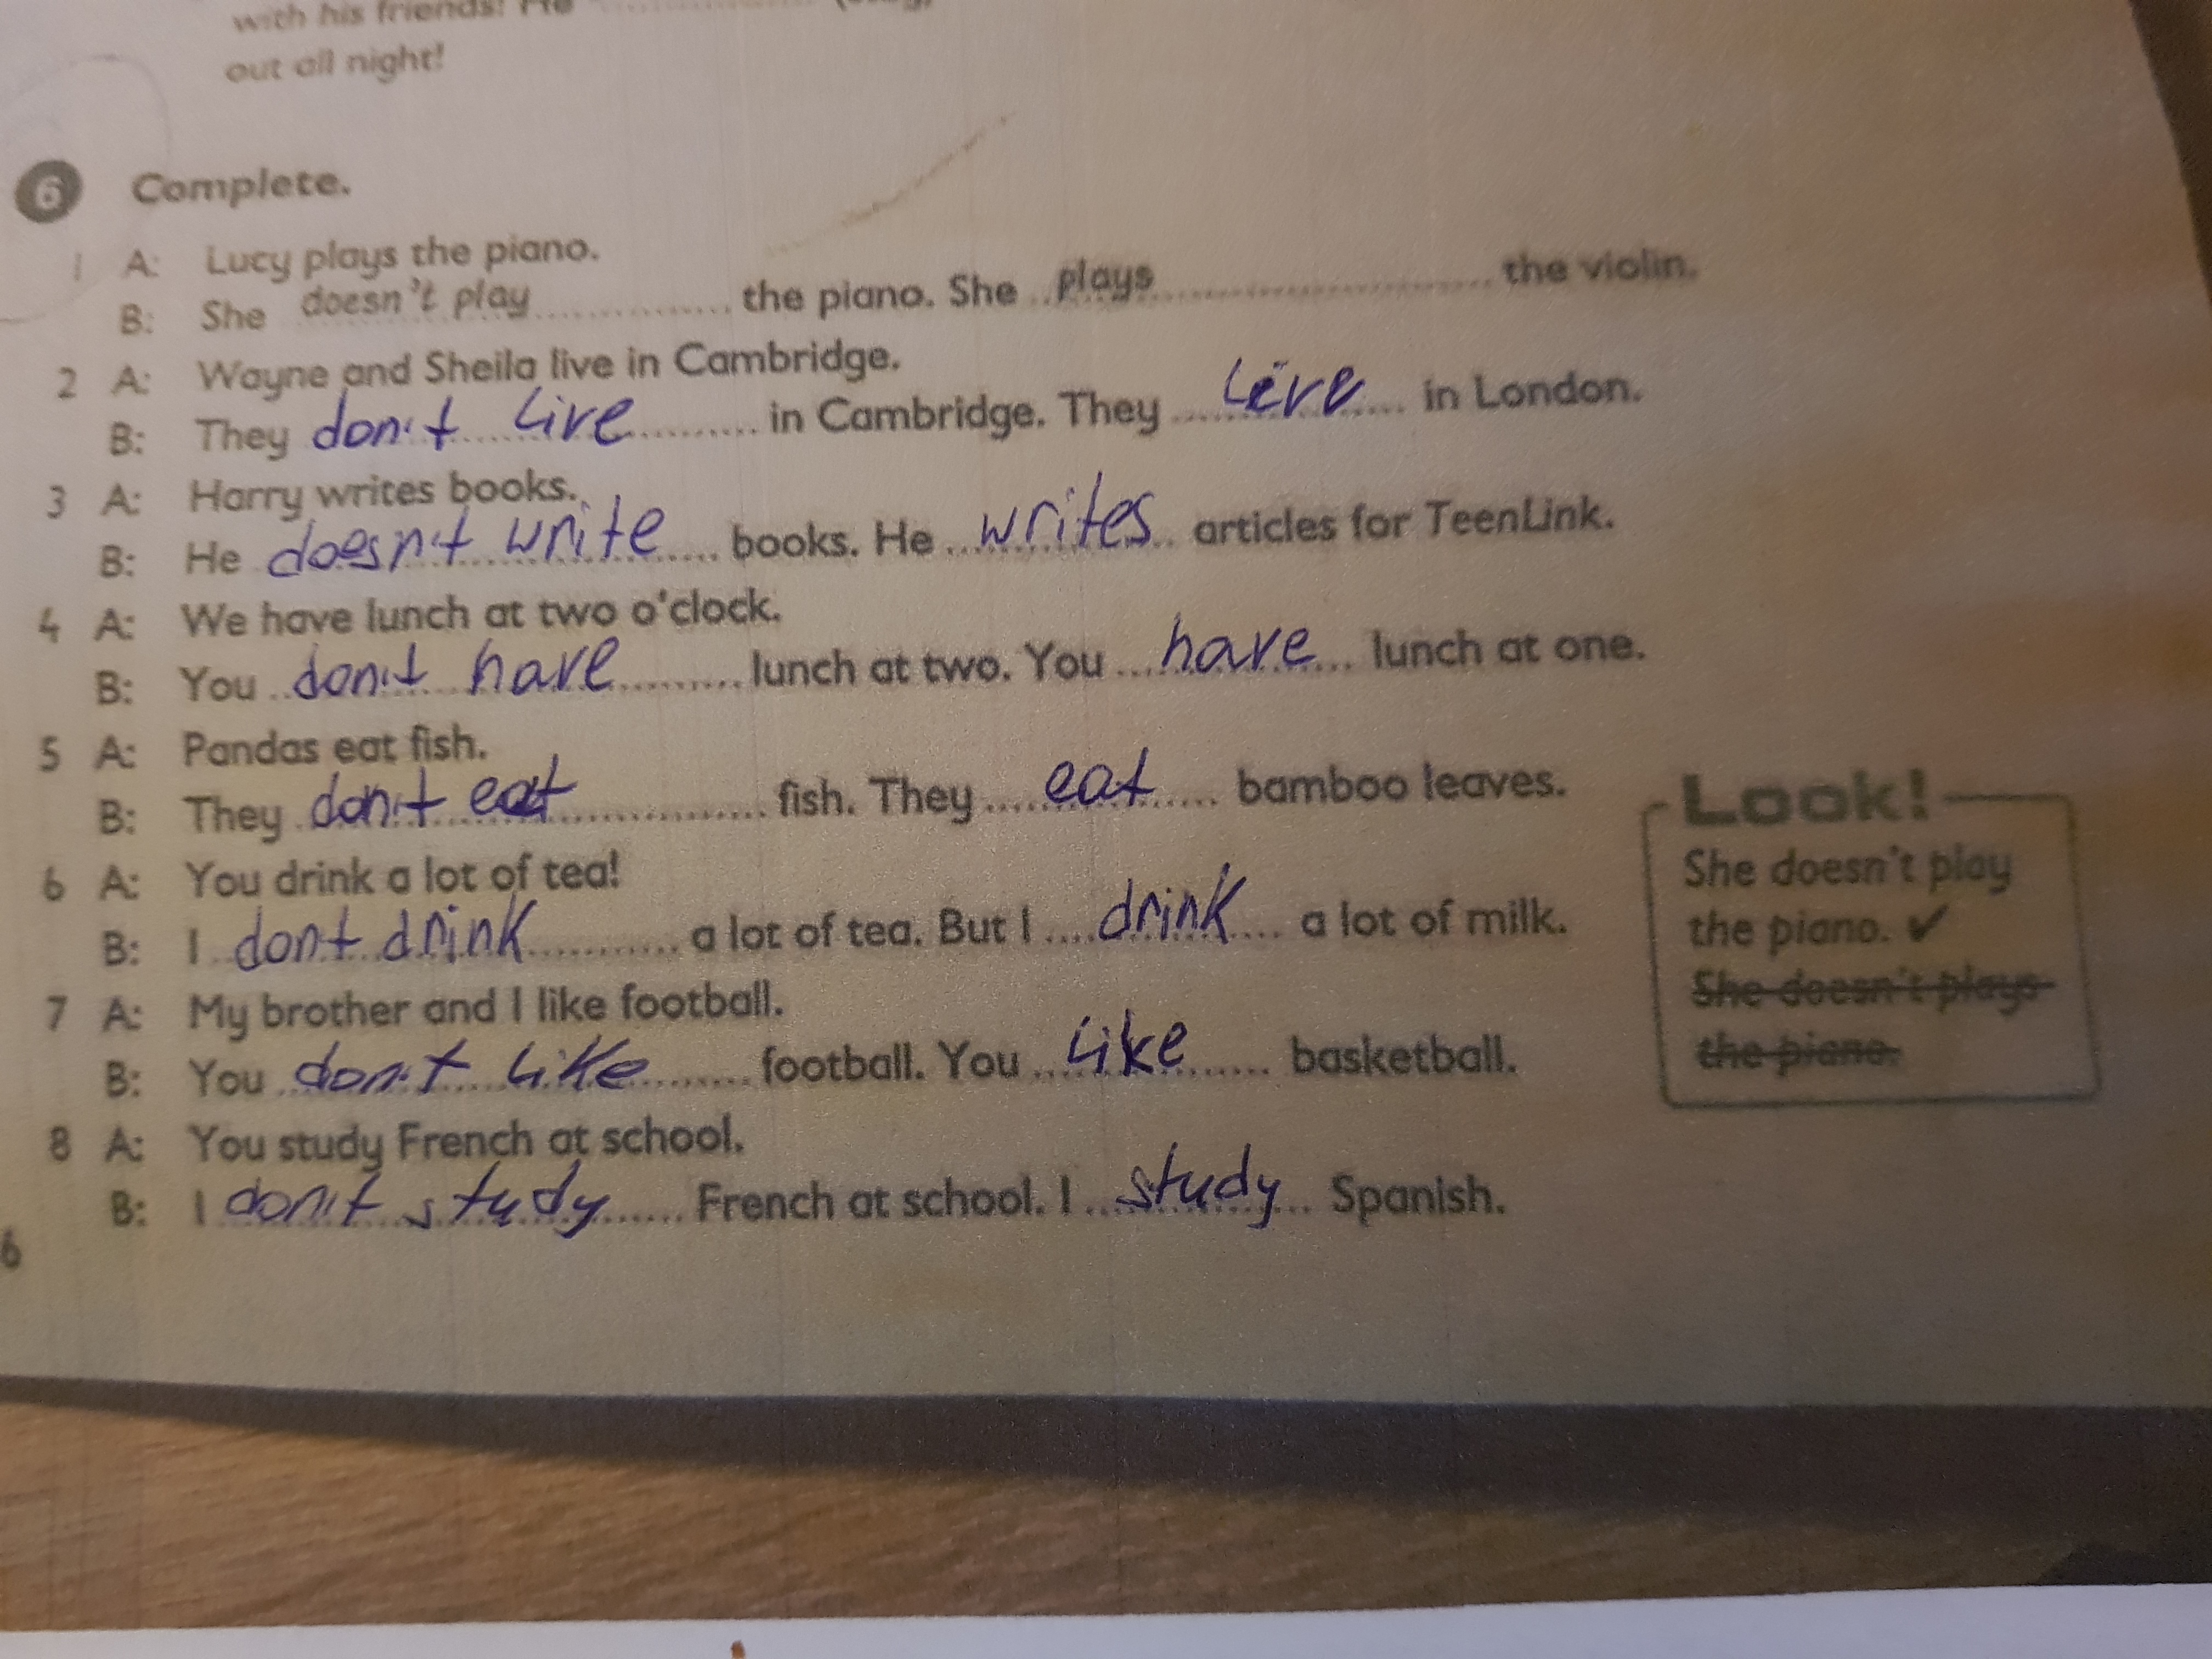 with his friends! He
out all night!
6 Complete.
1 A: Lucy plays the piano.
B: She doesn't play the piano. She plays the violin.
2 A: Wayne and Sheila live in Cambridge.
B: They don't live in Cambridge. They live in London.
3 A: Harry writes books.
B: He doesn't write books. He writes articles for TeenLink.
4 A: We have lunch at two o'clock.
B: You don't have lunch at two. You have lunch at one.
5 A: Pandas eat fish.
B: They don't eat fish. They eat bamboo leaves.
6 A: You drink a lot of tea!
B: I dont drink a lot of tea. But I drink a lot of milk.
7 A: My brother and I like football.
B: You don't like football. You like basketball.
8 A: You study French at school.
B: I don't study French at school. I study Spanish.
6
Look!
She doesn't play
the piano. ✔
She doesn't plays
the piano.